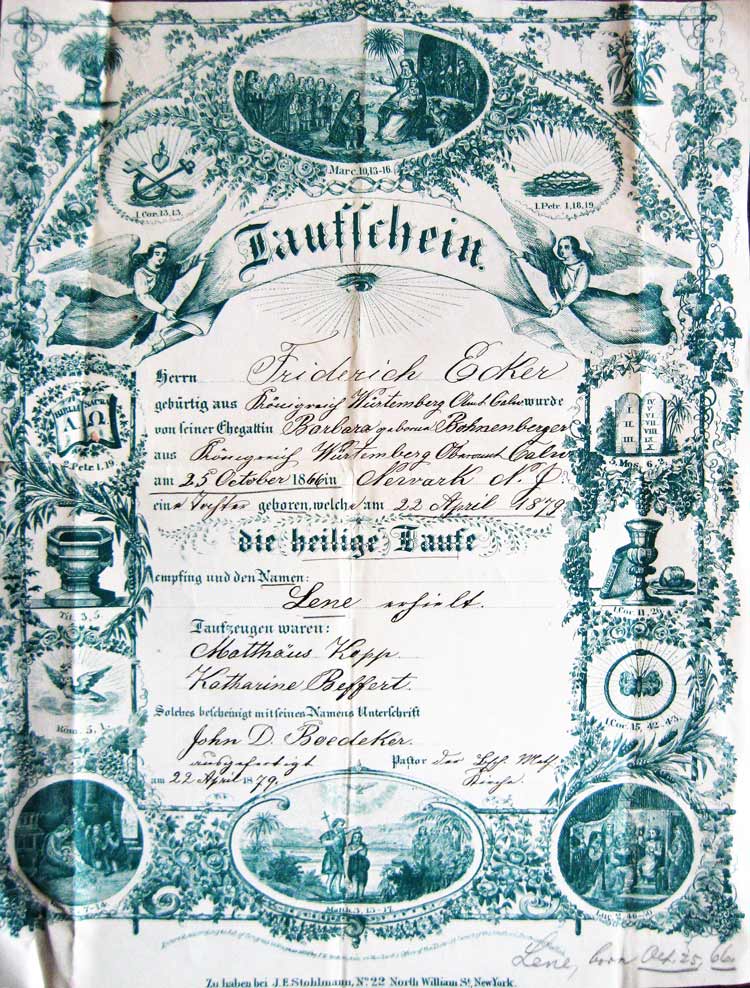 Marc. 10,13-16.
1.Cor. 13,13.
1.Petr. 1,18,19.
Taufschein.
Herrn Friderich Ecker
gebürtig aus Königreich Würtemberg Obmt. Calw wurde
von seiner Ehegattin Barbara geborne Bohnenberger
aus Königreich Würtemberg Oberamt Calw
am 25 October 1866 in Newark N. J.
eine Tochter geboren, welche am 22 April 1879
die heilige Taufe
empfing und den Namen:
Lene erhielt.
Taufzeugen waren:
Matthäus Kopp.
Katharine Beffert.
Solches bescheinigt mit seines Namens Unterschrift
John D. Boedeker.
ausgefertigt Pastor der Bsch. Meth.
am 22 April 1879. Kirche.
BIBLIA SACRA
Α Ω
2.Petr. 1,19.
I. II. III. IV. V. VI. VII. VIII. IX. X.
5.Mos. 6,2.
Tit. 3,5.
1.Cor. 11,26.
Röm. 5,1.
1.Cor. 15,42.43.
Luc. 2,7-14.
Matth. 3,13-17.
Luc. 2,46-50.
Lene, born Oct. 25, 66.
Zu haben bei J.E. Stohlmann, No. 22 North William St., New York.